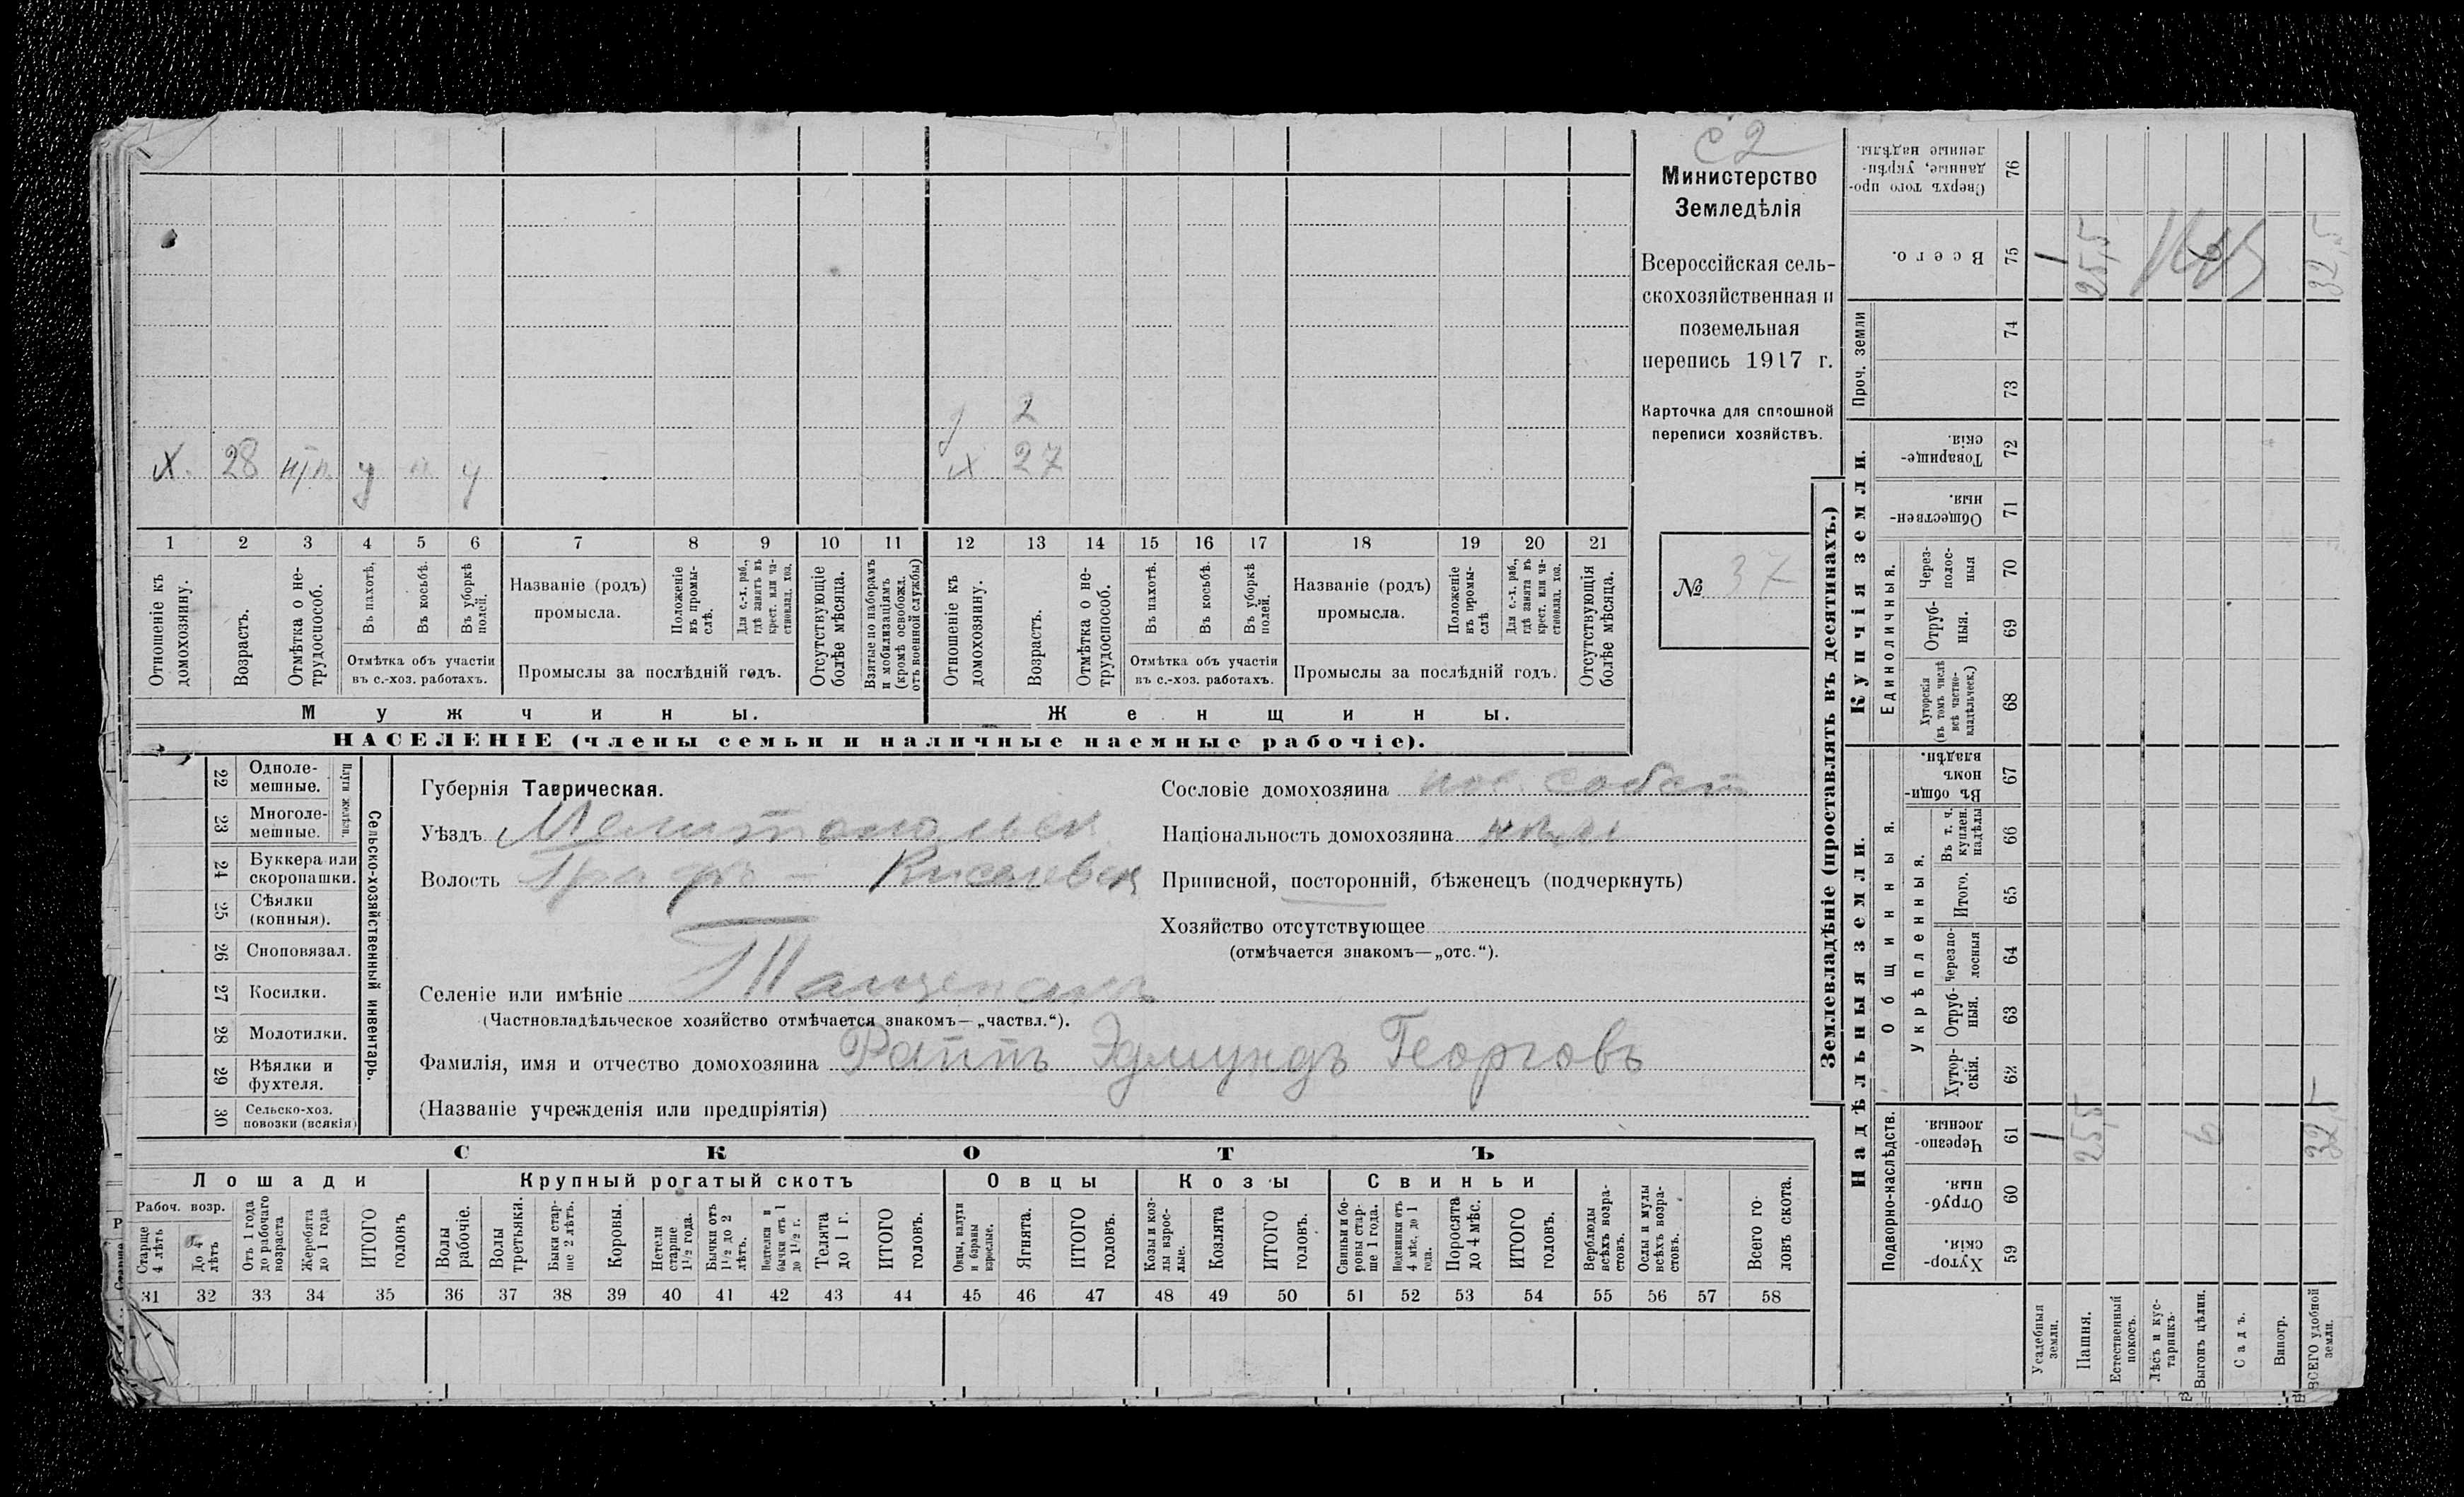 с 2
Министерство
Земледѣлія
Всероссійская сель-
скохозяйственная и
поземельная
перепись 1917 г.
Карточка для сплошной
переписи хозяйствъ.
№ 37
2
X. 28 у у
х 27
1 2 3 4 5 6 7 8 9 10 11 12 13 14 15 16 17 18 19 20 21
Отношеніе къ домохозяину.
Возрастъ.
Отмѣтка о не-трудоспособ.
Въ пахотѣ,
Въ косьбѣ.
Въ уборкѣ полей.
Отмѣтка объ участіи
въ с.-хоз. работахъ.
Названіе (родъ)
промысла.
Положеніе въ промы-слѣ.
Для с.-х. раб., гдѣ занятъ въ крест. или ча-стновлад. хоз.
Промыслы за послѣдній годъ.
Отсутствующіе болѣе мѣсяца.
Взятые по наборамъ и мобилизаціямъ (кромѣ освобожд. отъ военной службы)
Отношеніе къ домохозяину.
Возрастъ.
Отмѣтка о не-трудоспособ.
Въ пахотѣ.
Въ косьбѣ.
Въ уборкѣ полей.
Отмѣтка объ участіи
въ с.-хоз. работахъ.
Названіе (родъ)
промысла.
Положеніе въ промы-слѣ
Для с.-х. раб., гдѣ занята въ крест. или ча-стновлад. хоз.
Промыслы за послѣдній годъ.
Отсутствующія болѣе мѣсяца.
Мужчины.
Женщины.
НАСЕЛЕНІЕ (члены семьи и наличные наемные рабочіе).
22 Одноле-мешные.
23 Многоле-мешные.
24 Буккера или скоропашки.
25 Сѣялки (конныя).
26 Сноповязал.
27 Косилки.
28 Молотилки.
29 Вѣялки и фухтеля.
30 Сельско-хоз. повозки (всякія)
Сельско-хозяйственный инвентарь.
Губернія Таврическая.
Уѣздъ Мелитопольск
Волость Графъ - Киселевск
Селеніе или имѣніе
(Частновладѣльческое хозяйство отмѣчается знакомъ—„частвл.“).
Фамилія, имя и отчество домохозяина Раттъ Эдмундъ Георговъ
(Названіе учрежденія или предпріятія)
Сословіе домохозяина пос. собст
Національность домохозяина
Приписной, посторонній, бѣженецъ (подчеркнуть)
Хозяйство отсутствующее
(отмѣчается знакомъ—„отс.“).
СКОТЪ
Лошади
Крупный рогатый скотъ
Овцы
Козы
Свиньи
Рабоч. возр.
Старше 4 лѣтъ
До 4 лѣтъ
Отъ 1 года до рабочаго возраста
Жеребята до 1 года
ИТОГО головъ
Волы рабочіе.
Волы третьяки.
Быки стар-ше 2 лѣтъ.
Коровы.
Нетели старше 1½ года.
Бычки отъ 1½ до 2 лѣтъ.
Нетелки и бычки отъ 1 до 1½ г.
Телята до 1 г.
ИТОГО головъ.
Овцы, валухи и бараны взрослые.
Ягнята.
ИТОГО головъ.
Козы и коз-лы взрос-лые.
Козлята
ИТОГО головъ.
Свиньи и бо-ровы стар-ше 1 года.
Подсвинки отъ 4 мѣс. до 1 года.
Поросята до 4 мѣс.
ИТОГО головъ.
Верблюды всѣхъ возра-стовъ.
Ослы и мулы всѣхъ возра-стовъ.
Всего го-ловъ скота.
31 32 33 34 35 36 37 38 39 40 41 42 43 44 45 46 47 48 49 50 51 52 53 54 55 56 57 58
Землевладѣніе (проставлять въ десятинахъ.)
Надѣльныя земли.
Купчія земли.
Проч. земли
Подворно-наслѣдств.
Общинныя.
Укрѣпленныя.
Единоличныя.
Сверхъ того про-данные, укрѣп-ленные надѣлы. 76
Всего. 75
74
73
Товарище-скія. 72
Обществен-ныя. 71
Через-полос-ныя 70
Отруб-ныя. 69
Хуторскія (въ томъ числѣ всѣ частно-владѣльческ.) 68
Въ общин-номъ владѣн. 67
Въ т. ч. куплен. надѣлы 66
Итого. 65
Черезпо-лосныя 64
Отруб-ныя. 63
Хутор-скія. 62
Черезпо-лосныя. 61
Отруб-ныя. 60
Хутор-скія. 59
1 25,5 32,5
1 25,5 6 32,5
Усадебныя земли.
Пашня.
Естественный покосъ.
Лѣсъ и кус-тарникъ.
Выгонъ цѣлин.
Садъ.
Виногр.
ВСЕГО удобной земли.